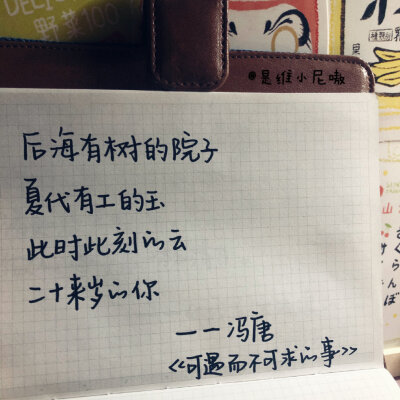 DELIC
野菜100
@是维小尼嗷
后海有树的院子
夏代有工的玉
此时此刻的云
二十来岁的你
——冯唐
<<可遇而不可求的事>>